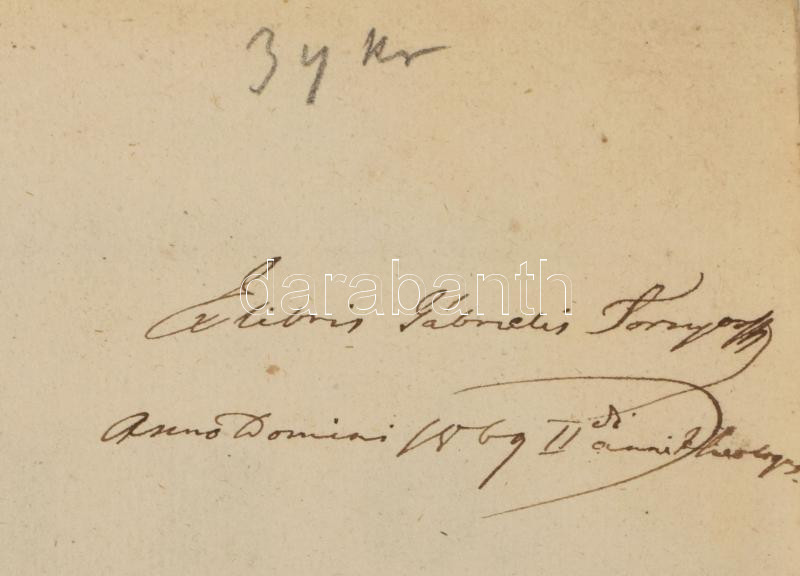 34 kr
darabanth
Ex libris Gabrielis
Anno Domini 1869 II di anni Theologus